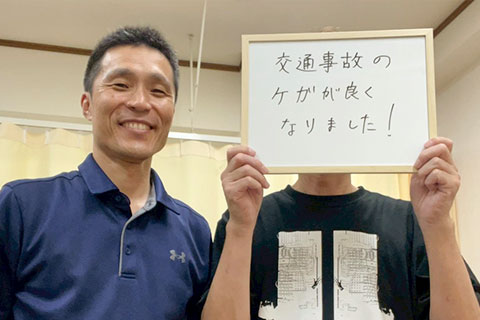 交通事故の
ケガが良く
なりました!